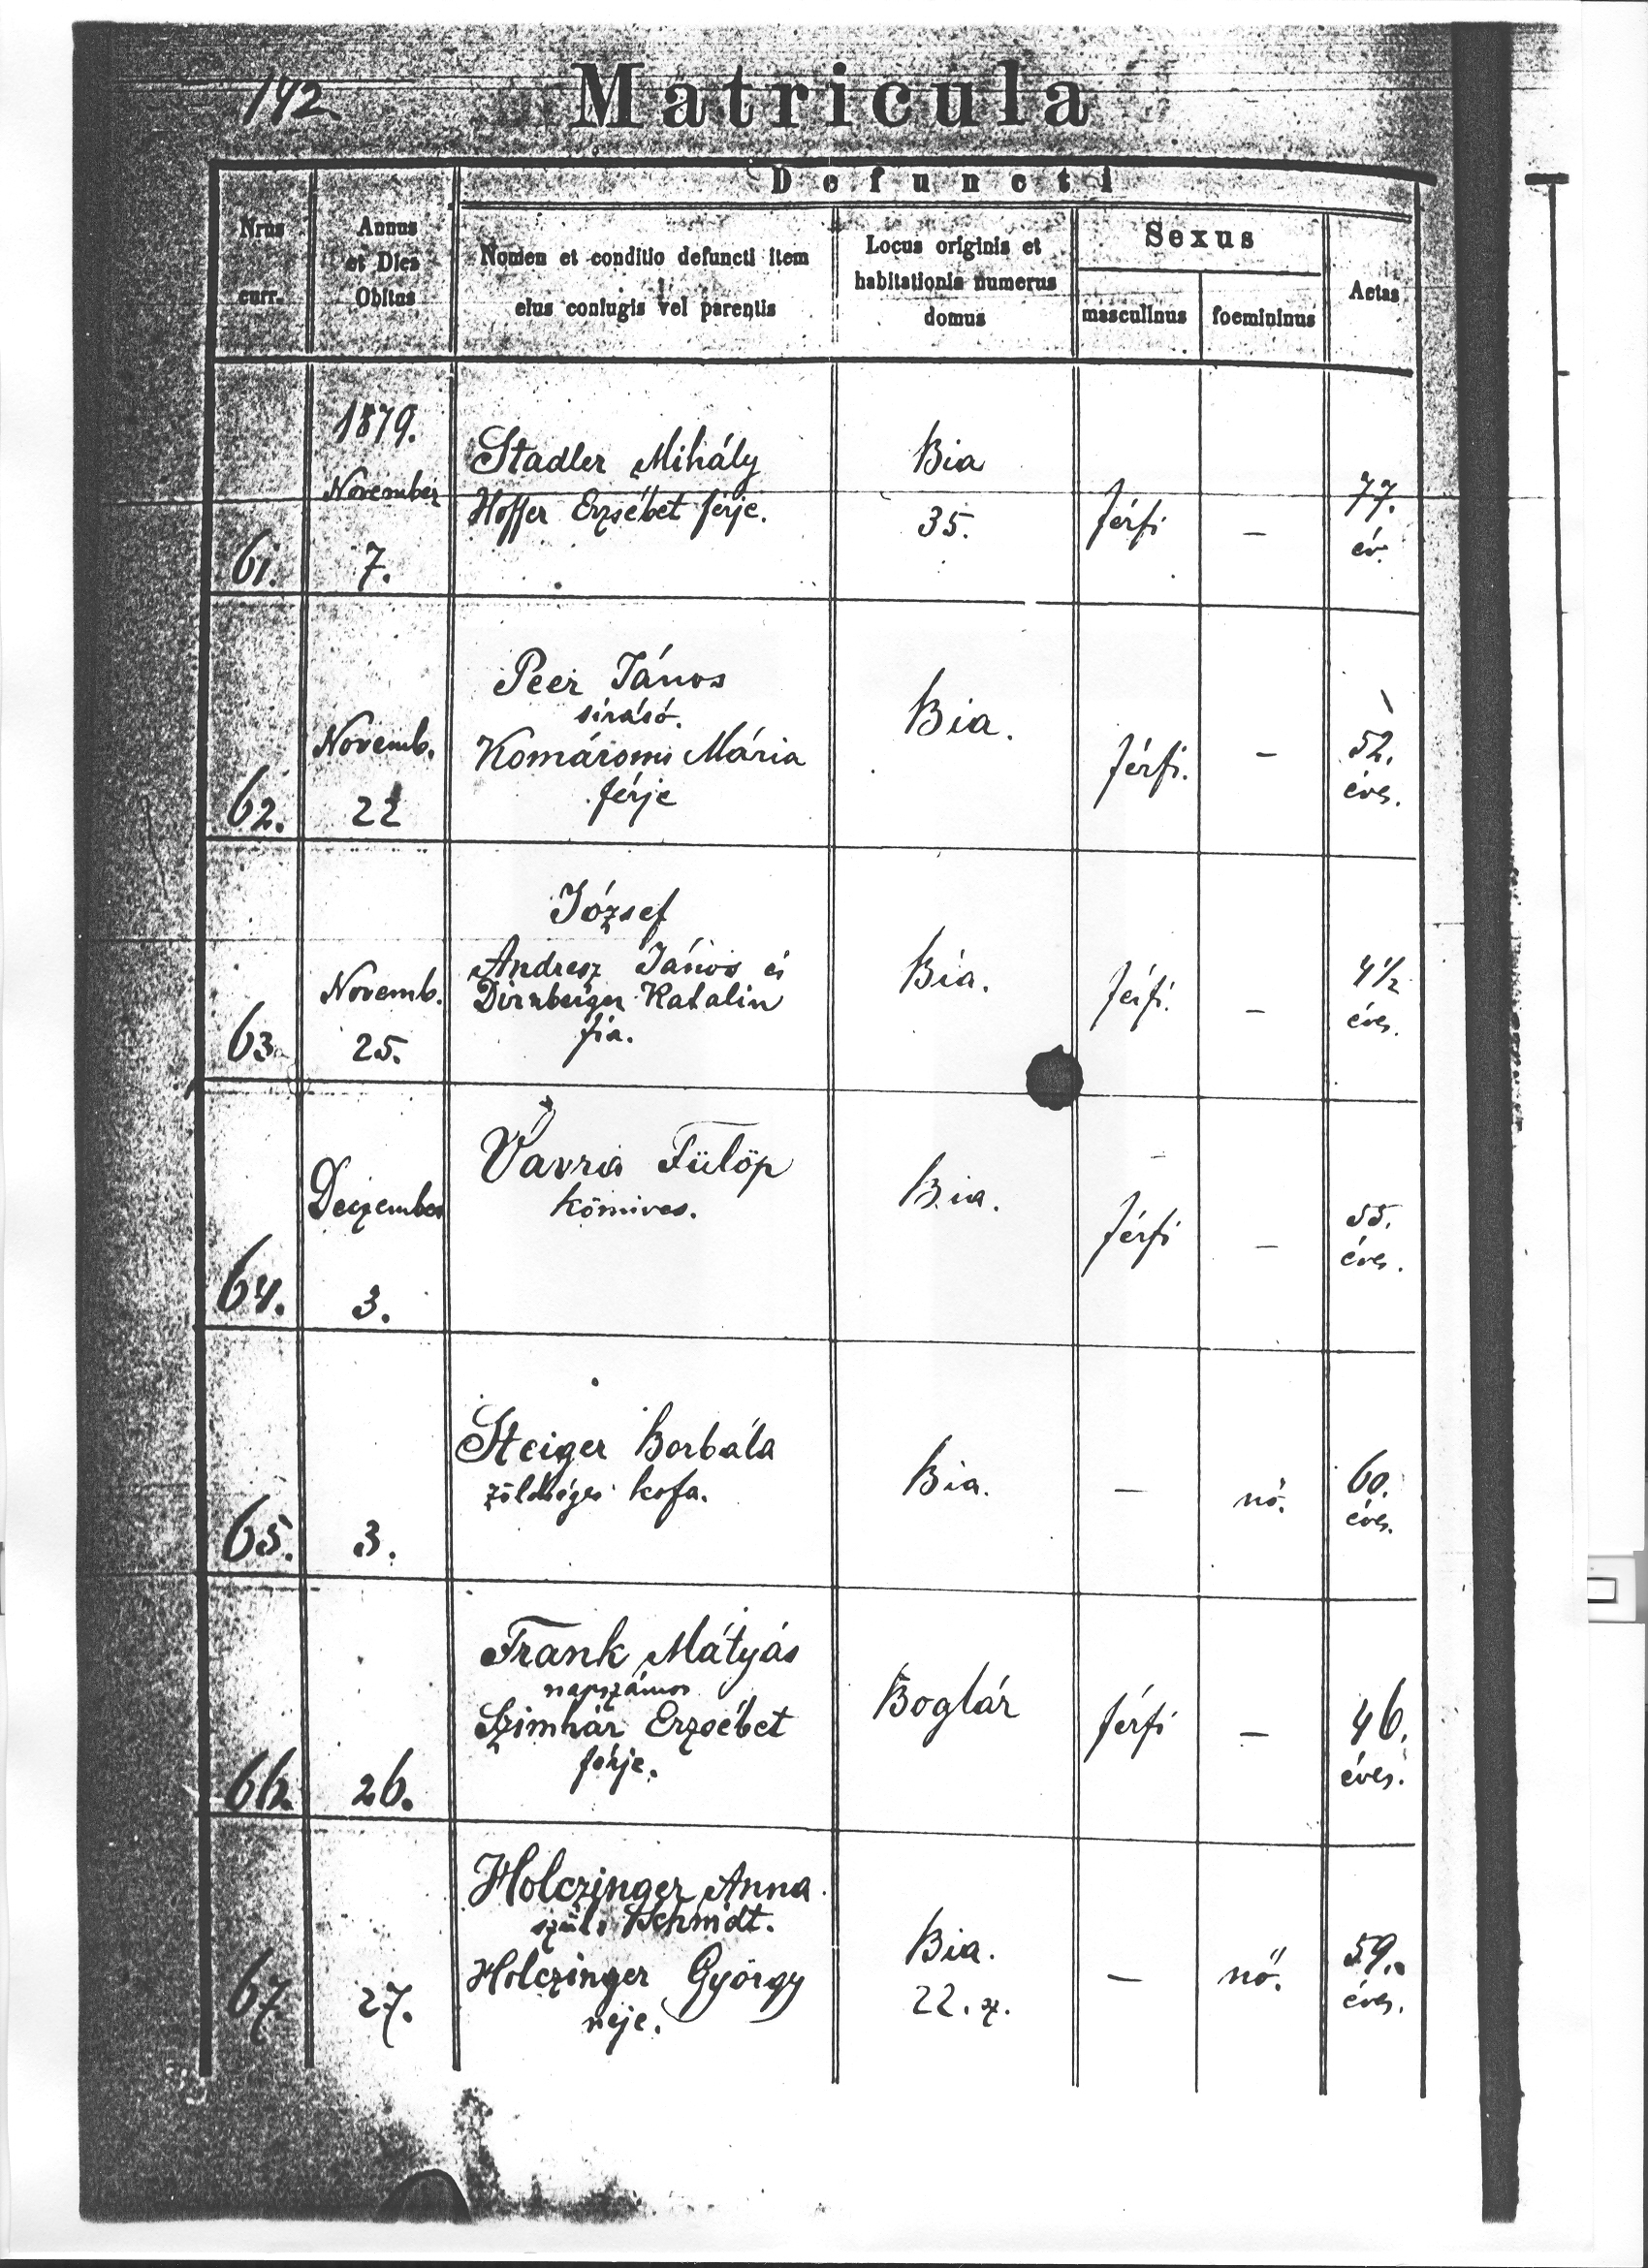 142
Matricula
Defuncti
Nrus curr.
Annus et Dies Obitus
Nomen et conditio defuncti item eius coniugis vel parentis
Locus originis et habitationis numerus domus
Sexus
masculinus
foemininus
Aetas
61.
1879.
November
7.
Stadler Mihály
Hoffer Erzsébet férje.
Bia
35.
férfi
–
77.
év.
62.
Novemb.
22
Peer János
sírásó.
Komáromi Mária
férje
Bia.
férfi.
–
52.
éves.
63
Novemb.
25.
József
Andresz János és
Dirnberger Katalin
fia.
Bia.
férfi.
–
4½
éves.
64.
Deczember
3.
Vavra Fülöp
kömives.
Bia.
férfi
–
55.
éves.
65.
3.
Steiger Borbála
zöldséges kofa.
Bia.
–
nő.
60.
éves.
66.
26.
Frank Mátyás
napszámos
Szimhár Erzsébet
férje.
Boglár
férfi
–
46.
éves.
67
27.
Holczinger Anna
szül. Schmidt.
Holczinger György
neje.
Bia.
22. z.
–
nő.
59.
éves.